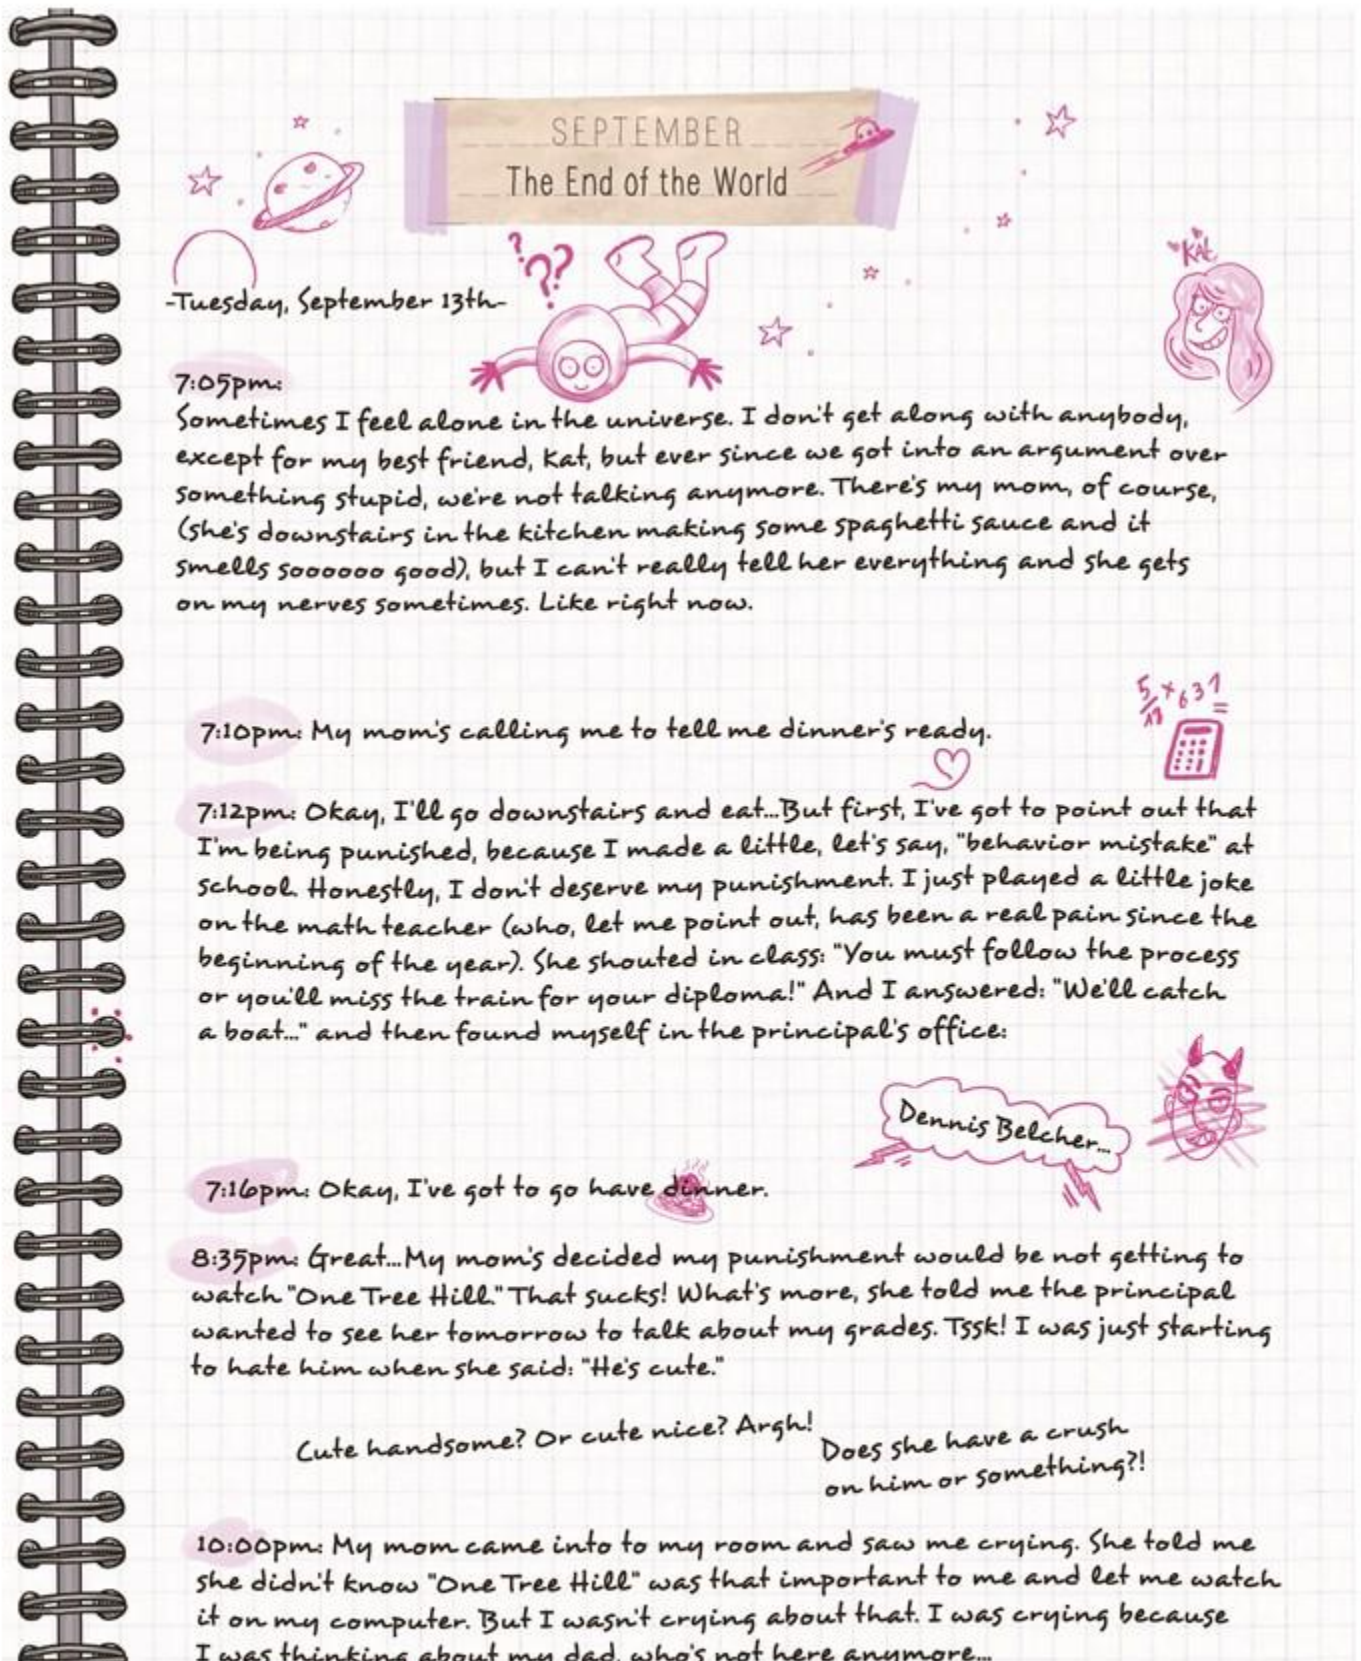 SEPTEMBER
The End of the World
???
Kat
-Tuesday, September 13th-
7:05pm:
Sometimes I feel alone in the universe. I don't get along with anybody,
except for my best friend, Kat, but ever since we got into an argument over
something stupid, we're not talking anymore. There's my mom, of course,
(she's downstairs in the kitchen making some spaghetti sauce and it
smells soooooo good), but I can't really tell her everything and she gets
on my nerves sometimes. Like right now.
7:10pm: My mom's calling me to tell me dinner's ready.
7:12pm: Okay, I'll go downstairs and eat...But first, I've got to point out that
I'm being punished, because I made a little, let's say, "behavior mistake" at
school. Honestly, I don't deserve my punishment. I just played a little joke
on the math teacher (who, let me point out, has been a real pain since the
beginning of the year). She shouted in class: "You must follow the process
or you'll miss the train for your diploma!" And I answered: "We'll catch
a boat..." and then found myself in the principal's office:
Dennis Belcher...
7:16pm: Okay, I've got to go have dinner.
8:35pm: Great...My mom's decided my punishment would be not getting to
watch "One Tree Hill." That sucks! What's more, she told me the principal
wanted to see her tomorrow to talk about my grades. Tssk! I was just starting
to hate him when she said: "He's cute."
Cute handsome? Or cute nice? Argh!
Does she have a crush
on him or something?!
10:00pm: My mom came into to my room and saw me crying. She told me
she didn't know "One Tree Hill" was that important to me and let me watch
it on my computer. But I wasn't crying about that. I was crying because
I was thinking about my dad, who's not here anymore...